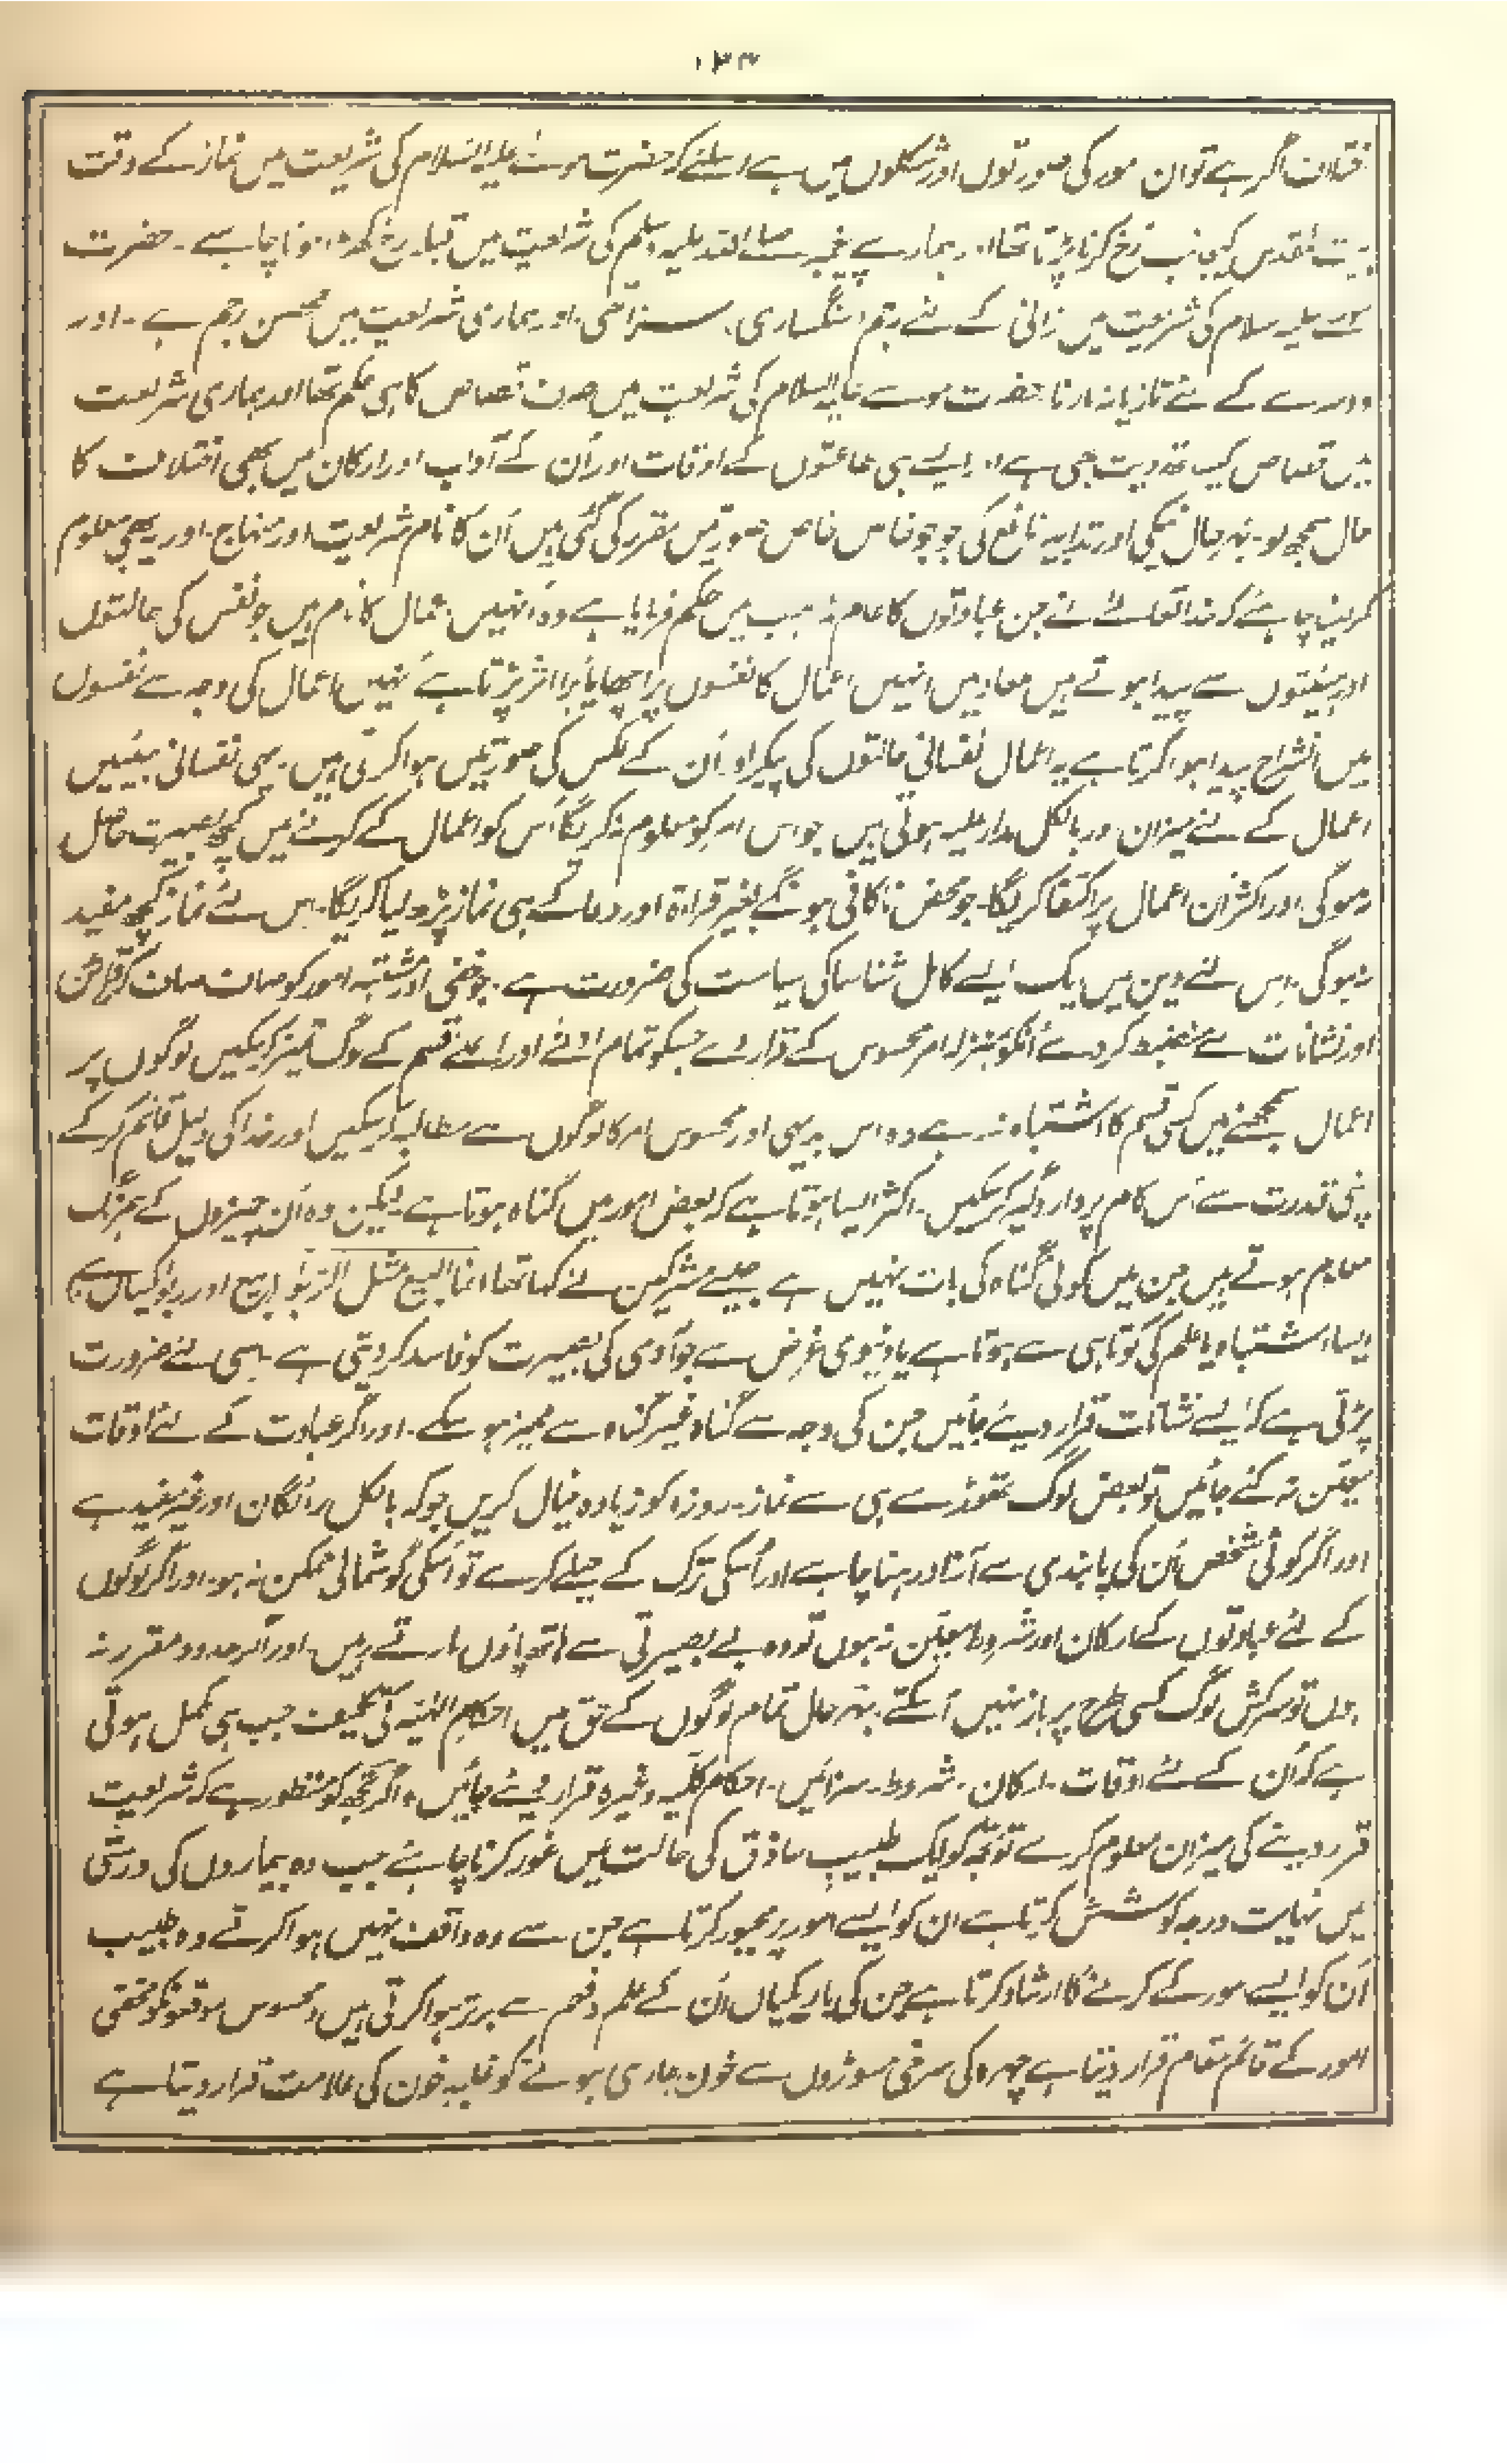 ۱۳۶
اگر ہے تو ان امور کی صورتوں اور شکلوں میں ہے اسلئے کہ حضرت موسےٰ علیہ السلام کی شریعت میں نماز کے وقت
بیت المقدس کیجانب رخ کرنا پڑتا تھا اور ہمارے پیغمبر صلے اللہ علیہ وسلم کی شریعت میں قبلہ رخ کھڑا ہونا چاہیے۔ حضرت
موسے علیہ سلام کی شریعت میں زانی کے لئے رجم (سنگساری) سزا تھی۔ اور ہماری شریعت میں محصن رجم ہے۔ اور
دوسرے کے لئے تازیانہ مارنا۔ حضرت موسے علیہ السلام کی شریعت میں صرف قصاص کا ہی حکم تھا اور ہماری شریعت
میں قصاص کیساتھ دیت بھی ہے اور ایسے ہی طاعتوں کے اوقات اور اُن کے آداب اور ارکان میں بھی اختلاف کا
حال سمجھ لو۔ بہرحال نیکی اور تدابیر نافع کی جو جو خاص خاص صورتیں مقرر کی گئی ہیں اُن کا نام شریعت اور منہاج۔ اور یہ بھی معلوم
کرلینا چاہئے کہ خداتعالےٰ نے جن عبادتوں کا عام مذہب میں حکم فرمایا ہے وہ اُنہیں اعمال کا نام ہیں جو نفس کی حالتوں
اور ہیئتوں سے پیدا ہوتے ہیں معاد میں انہیں اعمال کا نفسوں پر اچھا یا بُرا اثر پڑتا ہے انہیں اعمال کی وجہ سے نفسوں
میں انشراح پیدا ہوا کرتا ہے یہ اعمال نفسانی حالتوں کی پیکر اور اُن کے عکس کی صورتیں ہوا کرتی ہیں۔ یہی نفسانی ہیئتیں
اعمال کے لئے میزان اور بالکل مدار علیہ ہوتی ہیں جو اس امر کو معلوم نہ کریگا اُس کو اعمال کے کرنے میں کچھ بصیرت حاصل
نہ ہوگی۔ اور اکثر ان اعمال پر اکتفا کریگا۔ جو محض ناکافی ہونگے بغیر قراءۃ اور دعا کے ہی نماز پڑھ لیا کریگا۔ اس لئے نماز کچھ مفید
نہ ہوگی۔ اس لئے دین میں ایک ایسے کامل شناسا کی سیاست کی ضرورت ہے۔ جو مخفی اور مشتبہ امور کو صاف صاف
اور نشانات سے منضبط کردے اُنکو بمنزلہ امر محسوس کے قرار دے جسکو تمام ادنےٰ اور اعلےٰ قسم کے لوگ تمیز کرسکیں لوگوں پر
اعمال سمجھنے میں کسی قسم کا اشتباہ نہ رہے وہ اس بدیہی اور محسوس امر کا لوگوں سے مطالبہ کرسکیں اور خدا کی دلیل قائم کرکے
اپنی قدرت سے اُس کام پر دار و گیر کرسکیں۔ اکثر ایسا ہوتا ہے کہ بعض امور میں گناہ ہوتا ہے لیکن وہ اُن چیزوں کے ہمرنگ
معلوم ہوتے ہیں جن میں کوئی گناہ کی بات نہیں ہے جیسے مشرکین نے کہا تھا انما البیع مثل الربوٰا (بیع اور ربوٰ یکساں ہے)
ایسا اشتباہ یا علم کی کوتاہی سے ہوتا ہے یا دنیوی غرض سے جو آدمی کی بصیرت کو فاسد کردیتی ہے۔ اسی لئے ضرورت
پڑتی ہے کہ ایسے نشانات قرار دیئے جائیں جن کی وجہ سے گناہ غیر گناہ سے ممیز ہوسکے۔ اور اگر عبادت کے لئے اوقات
معین نہ کئے جائیں تو بعض لوگ تھوڑے ہی سے نماز۔ روزہ کو زیادہ خیال کریں جو کہ بالکل رائگان اور غیر مفید ہے
اور اگر کوئی شخص اُن کی پابندی سے آزاد رہنا چاہے اور اُسکی ترک کے حیلے کرے تو اُسکی گوشمالی ممکن نہ ہو۔ اور اگر لوگوں
کے لئے عبادتوں کے ارکان اور شروط معین نہ ہوں تو وہ بے بصیرتی سے ہاتھ پاؤں مارتے رہیں۔ اور اگر حدود مقرر نہ
ہوں تو سرکش لوگ کسی طرح پر باز نہیں آسکتے۔ بہرحال تمام لوگوں کے حق میں احکام الٰہیہ کی تکلیف جب ہی مکمل ہوتی
ہے کہ اُن کے لئے اوقات۔ ارکان۔ شروط۔ سزائیں۔ احکام کلیہ وغیرہ قرار دیئے جائیں۔ اگر تجھ کو منظور ہے کہ شریعت
قرار دینے کی میزان معلوم کرے تو تجھ کو ایک طبیب حاذق کی حالت میں غور کرنا چاہئے جب وہ بیماروں کی درستی
میں نہایت درجہ کوشش کرتا ہے ان کو ایسے امور پر مجبور کرتا ہے جن سے وہ واقف نہیں ہوا کرتے وہ طبیب
اُن کو ایسے امور کے کرنے کا ارشاد کرتا ہے جن کی باریکیاں اُن کے علم و فہم سے برتر ہوا کرتی ہیں وہ محسوس موقعونکو مخفی
امور کے قائم مقام قرار دیتا ہے چہرہ کی سرخی مسوڑوں سے خون جاری ہونے کو غلبہ خون کی علامت قرار دیتا ہے